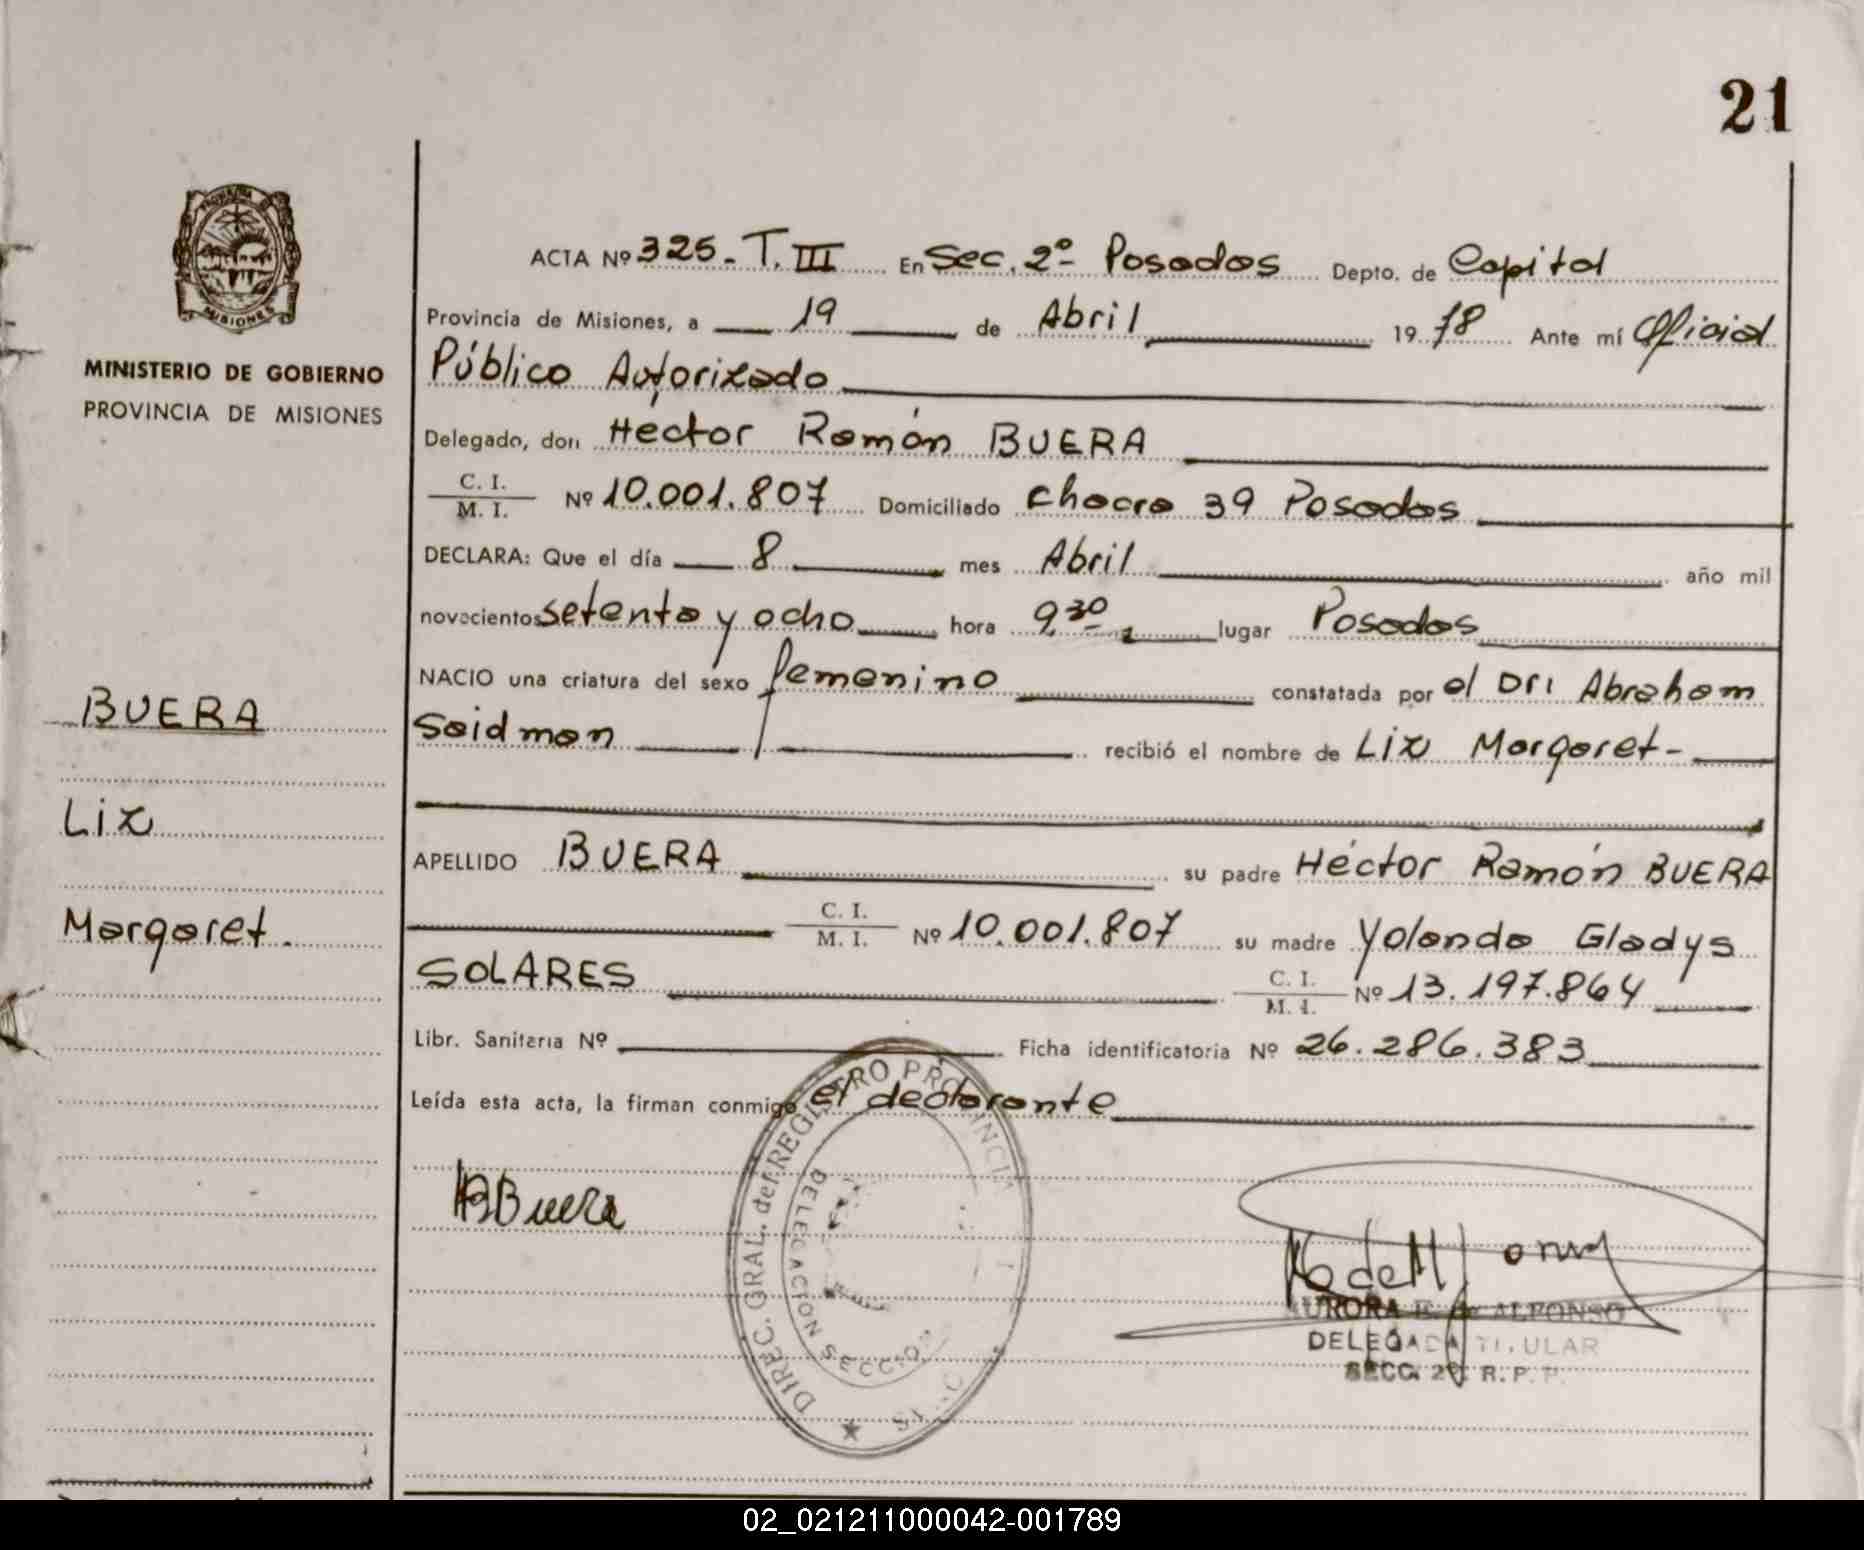 21
MINISTERIO DE GOBIERNO
PROVINCIA DE MISIONES
MISIONES
BUERA
Liz
Margaret.
ACTA Nº 325 - T. III En Sec. 2º Posadas Depto. de Capital
Provincia de Misiones, a 19 de Abril 19 78 Ante mí Oficial
Público Autorizado
Delegado, don Héctor Ramón BUERA
C. I. / M. I. Nº 10.001.807 Domiciliado Chacra 39 Posadas
DECLARA: Que el día 8 mes Abril año mil
novecientos setenta y ocho hora 9 30 lugar Posadas
NACIO una criatura del sexo femenino constatada por el Dr. Abraham
Saidman recibió el nombre de Liz Margaret-
APELLIDO BUERA su padre Héctor Ramón BUERA
C. I. / M. I. Nº 10.001.807 su madre Yolanda Gladys
SOLARES C. I. / M. I. Nº 13.197.864
Libr. Sanitaria Nº Ficha identificatoria Nº 26.286.383
Leída esta acta, la firman conmigo el declarante
DIREC. GRAL. del REGISTRO PROVINCIAL
DELEGACION SECC. 2º
Buera
AURORA E. de ALFONSO
DELEGADA TITULAR
SECC. 2ª R. P. P.
02_021211000042-001789